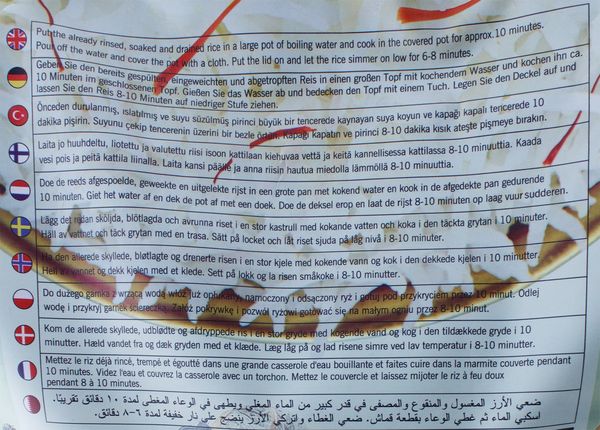 Put the already rinsed, soaked and drained rice in a large pot of boiling water and cook in the covered pot for approx.10 minutes.
Pour off the water and cover the pot with a cloth. Put the lid on and let the rice simmer on low for 6-8 minutes.
Geben Sie den bereits gespülten, eingeweichten und abgetropften Reis in einen großen Topf mit kochendem Wasser und kochen ihn ca.
10 Minuten im geschlossenen Topf. Gießen Sie das Wasser ab und bedecken den Topf mit einem Tuch. Legen Sie den Deckel auf und
lassen Sie den Reis 8-10 Minuten auf niedriger Stufe ziehen.
Önceden durulanmış, ıslatılmış ve suyu süzülmüş pirinci büyük bir tencerede kaynayan suya koyun ve kapağı kapalı tencerede 10
dakika pişirin. Suyunu çekip tencerenin üzerini bir bezle örtün. Kapağı kapatın ve pirinci 8-10 dakika kısık ateşte pişmeye bırakın.
Laita jo huuhdeltu, liotettu ja valutettu riisi isoon kattilaan kiehuvaa vettä ja keitä kannellisessa kattilassa 8-10 minuuttia. Kaada
vesi pois ja peitä kattila liinalla. Laita kansi päälle ja anna riisin hautua miedolla lämmöllä 8-10 minuuttia.
Doe de reeds afgespoelde, geweekte en uitgelekte rijst in een grote pan met kokend water en kook in de afgedekte pan gedurende
10 minuten. Giet het water af en dek de pot af met een doek. Doe de deksel erop en laat de rijst 8-10 minuten op laag vuur sudderen.
Lägg det redan sköljda, blötlagda och avrunna riset i en stor kastrull med kokande vatten och koka i den täckta grytan i 10 minuter.
Häll av vattnet och täck grytan med en trasa. Sätt på locket och låt riset sjuda på låg nivå i 8-10 minuter.
Ha den allerede skyllede, bløtlagte og drenerte risen i en stor kjele med kokende vann og kok i den dekkede kjelen i 10 minutter.
Hell av vannet og dekk kjelen med et klede. Sett på lokk og la risen småkoke i 8-10 minutter.
Do dużego garnka z wrzącą wodą włóż już opłukany, namoczony i odsączony ryż i gotuj pod przykryciem przez 10 minut. Odlej
wodę i przykryj garnek ściereczką. Załóż pokrywkę i pozwól ryżowi gotować się na małym ogniu przez 8-10 minut.
Kom de allerede skyllede, udblødte og afdryppede ris i en stor gryde med kogende vand og kog i den tildækkede gryde i 10
minutter. Hæld vandet fra og dæk gryden med et klæde. Læg låg på og lad risene simre ved lav temperatur i 8-10 minutter.
Mettez le riz déjà rincé, trempé et égoutté dans une grande casserole d'eau bouillante et faites cuire dans la marmite couverte pendant
10 minutes. Videz l'eau et couvrez la casserole avec un torchon. Mettez le couvercle et laissez mijoter le riz à feu doux
pendant 8 à 10 minutes.
ضعي الأرز المغسول والمنقوع والمصفى في قدر كبير من الماء المغلي ويطهى في الوعاء المغطى لمدة ١٠ دقائق تقريبًا.
اسكبي الماء ثم غطي الوعاء بقطعة قماش. ضعي الغطاء واتركي الأرز ينضج على نار خفيفة لمدة ٦-٨ دقائق.